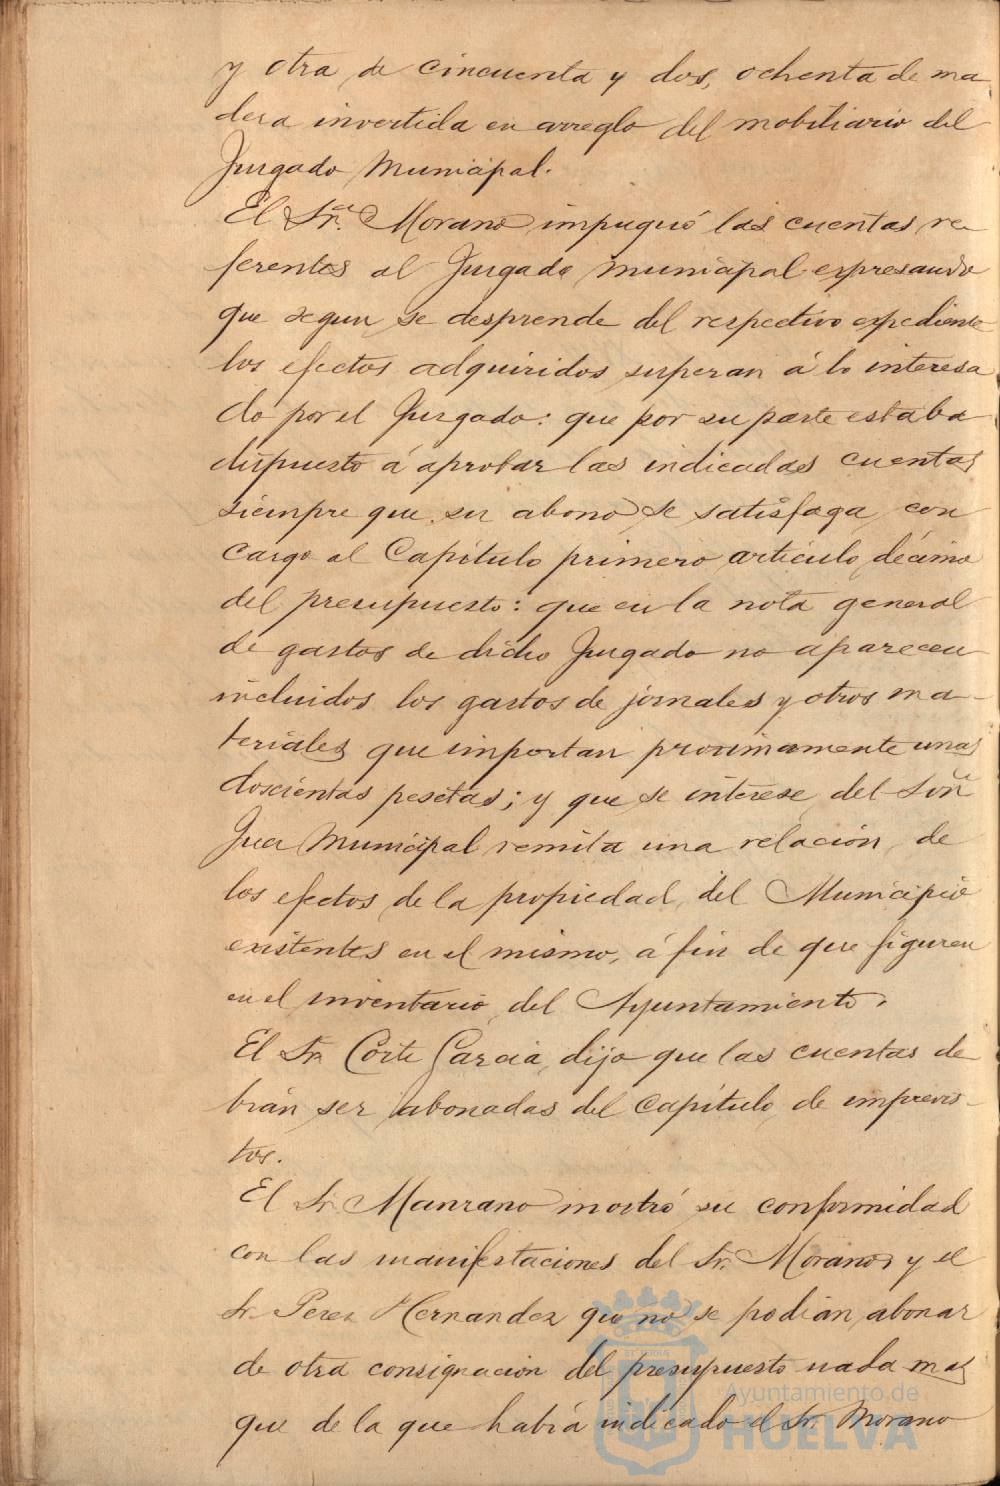 y otra de cincuenta y dos, ochenta de ma
dera invertida en arreglo del mobiliario del
Juzgado Municipal.
El Sr. Morano impugnó las cuentas re
ferentes al Juzgado municipal expresando
que segun se desprende del respectivo expediente
los efectos adquiridos superan á lo interesa
do por el Juzgado: que por su parte estaba
dispuesto á aprobar las indicadas cuentas
siempre que su abono se satisfaga con
cargo al Capítulo primero artículo décimo
del presupuesto: que en la nota general
de gastos de dicho Juzgado no aparecen
incluidos los gastos de jornales y otros ma-
teriales que importan proximamente unas
doscientas pesetas; y que se interese del Señ
Juez Municipal remita una relación de
los efectos de la propiedad del Municipio
existentes en el mismo, á fin de que figuren
en el inventario del Ayuntamiento.
El Sr. Corte García dijo que las cuentas de
bían ser abonadas del Capítulo de imprevis-
tos.
El Sr. Manzano mostró su conformidad
con las manifestaciones del Sr. Morano, y el
Sr. Perez Hernandez que no se podían abonar
de otra consignacion del presupuesto nada mas
que de la que había indicado el Sr. Morano
Ayuntamiento de
HUELVA